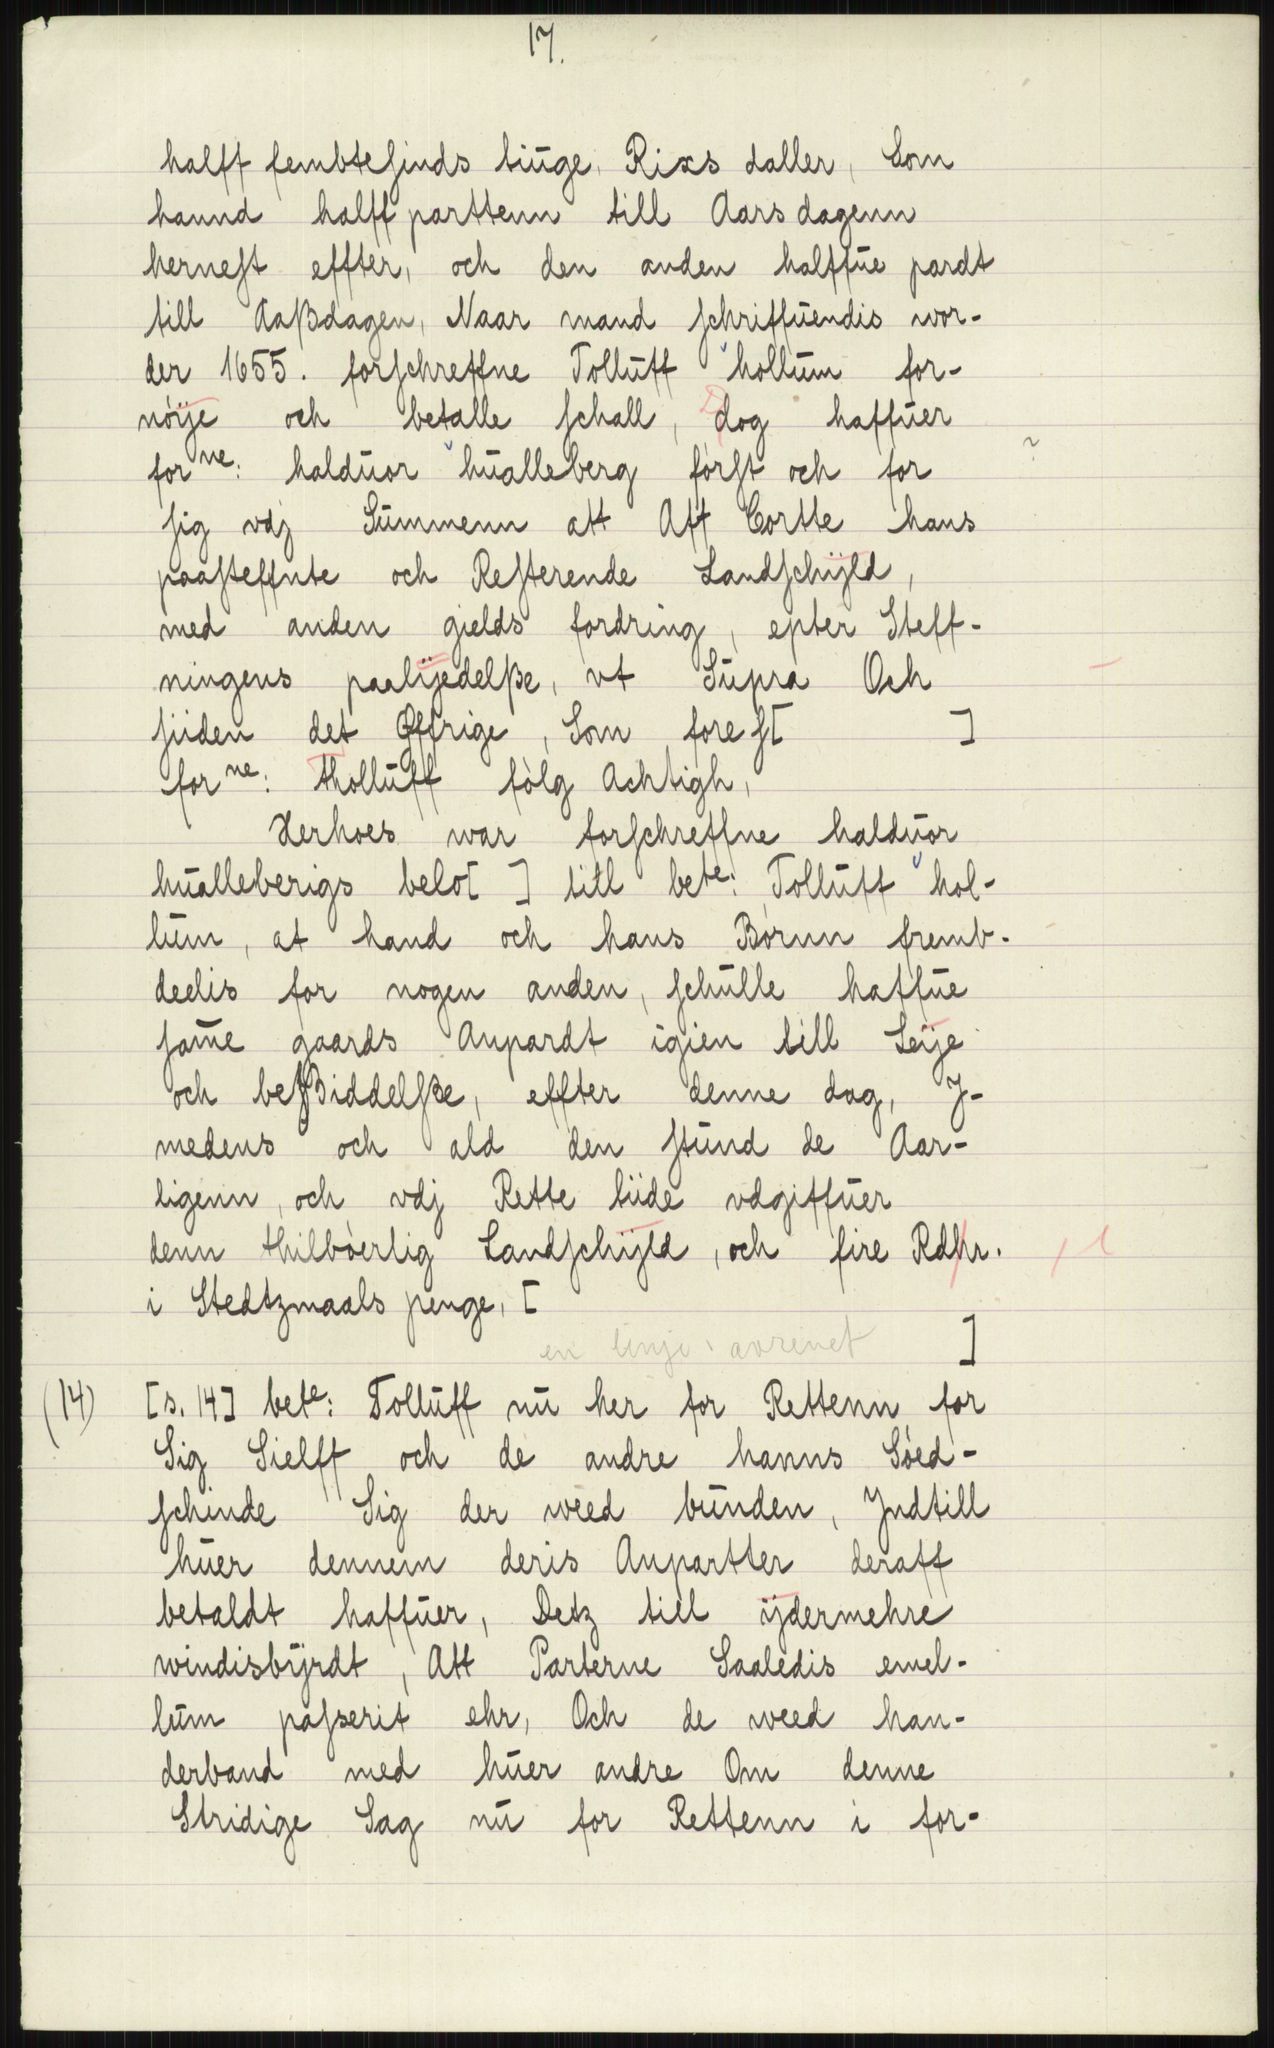 17.
halff fembtesinds tiuge, Rixs daller, Som
hannd halff parttenn till Aars dagenn
hernest effter, och den anden halffue pardt
till Aaßdagen, Naar mand schriffuendis wor-
der 1655. forschreffne Tolluff hollum for-
nöije och betalle schall, dog haffuer
for ne: halduor hualleberg först och for ?
sig vdj Summenn att Aff Cortte hans
paasteffnte och Resterende Landschijld,
med anden gields fordring, epter Steff-
ningens paalijedelße, vt Supra Och
siiden det Øffrige, Som forest[ ]
for ne: tholluff fölg Achtigh,
Herhoes war forschreffne halduor
hualleberigs belo[ ] till bete: Tolluff hol-
lum, at hand och hans Börnn fremb-
deelis for nogen anden, schulle haffue
same gaards Anpardt igien till Leije
och beßiddelße, effter denne dag, J-
medens och ald den stund de Aar-
ligenn, och vdj Rette tiide vdgiffuer
denn thilböerlig Landschijld, och fire Rdhr.
i Stedtzmaals penge, [
en linje avrevet ]
(14) [s. 14] bete: Tolluff nu her for Rettenn for
Sig Sielff och de andre hanns Söed-
schinde Sig der weed bunden, Jndtill
huer dennem deris Anpartter deraff
betaldt haffuer, Detz till ijdermehre
windisbyrdt, Att Parterne Saaledis emel-
lum passerit ehr, Och de weed han-
derband med huer andre Om denne
Stridige Sag nu for Rettenn i for-